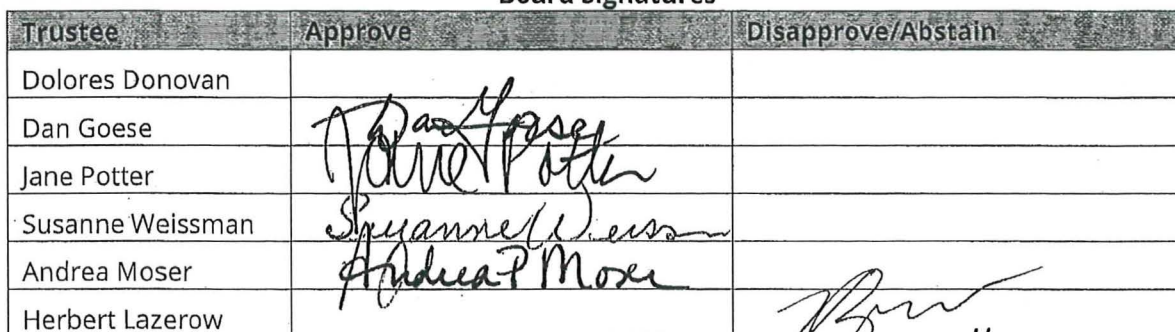 Board Signatures
Trustee Approve Disapprove/Abstain
Dolores Donovan
Dan Goese Dan Goese
Jane Potter Jane Potter
Susanne Weissman Susanne Weissm
Andrea Moser Andrea P Moser
Herbert Lazerow